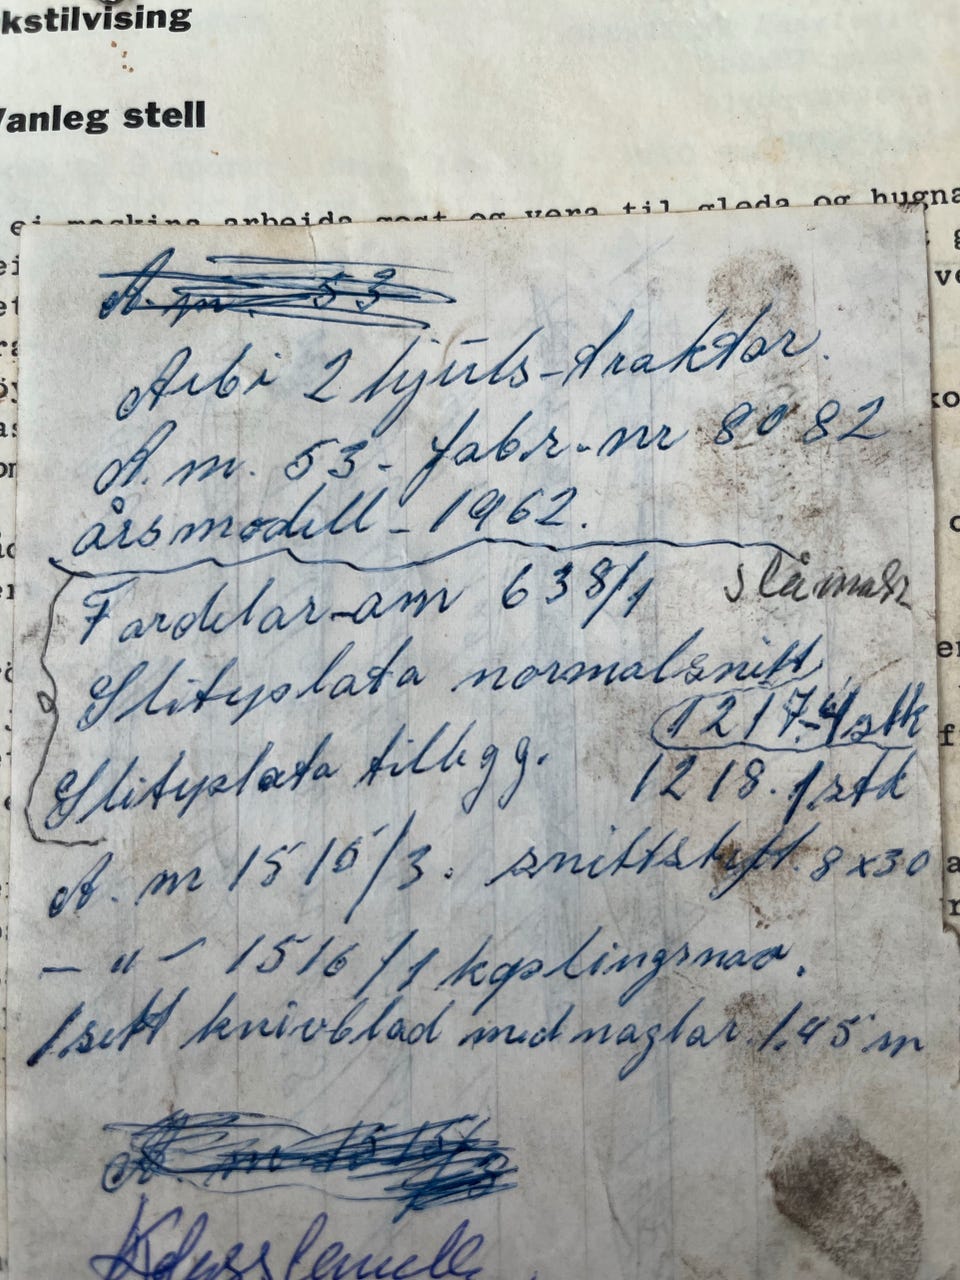 kstilvising
Vanleg stell
ei maskina arbeida godt og vera til gleda og hugna
A.m. 53
Arbi 2 hjuls-traktor.
A.m. 53- fabr.-nr 8082
årsmodell - 1962.
Fordelar-am 638/1 slåmask
Slityplata normalsnitt
1217-4 stk
Slityplata tillegg.
1218. 1 stk
A.m 1515/3. snittstift. 8x30
— " — 1516/1 koplingsnav.
1 sett knivblad med naglar. 1,45 m
A.m 1515/3